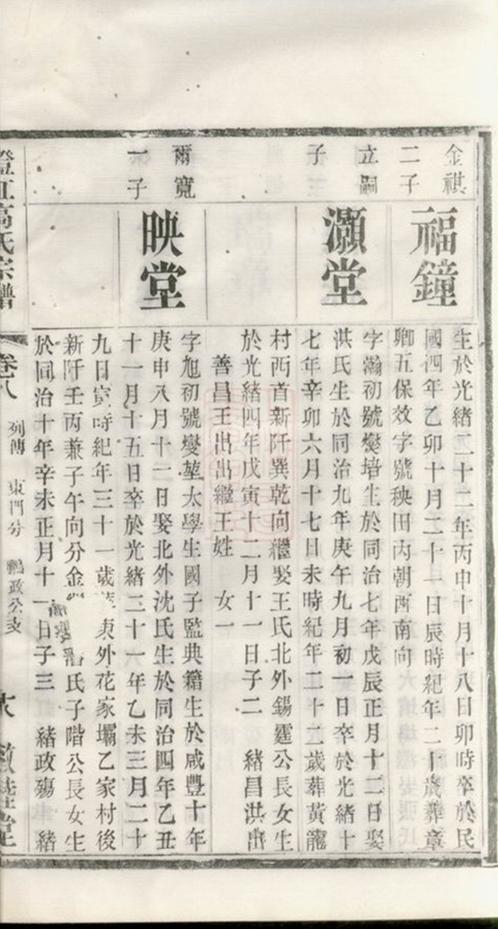 金祺
二子
福鐘
生於光緒二十二年丙申十月十八日卯時卒於民
國四年乙卯十月二十一日辰時紀年二十歲葬章
卿五保效字號秧田內朝酉南向
立嗣
子
灝堂
字瀚初號爕培生於同治七年戊辰正月十二日娶
洪氏生於同治九年庚午九月初一日卒於光緒十
七年辛卯六月十七日未時紀年二十二歲葬黃龍
村西首新阡巽乾向繼娶王氏北外錫霆公長女生
於光緒四年戊寅十二月十一日子二 緒昌洪出
善昌王出出繼王姓 女一
爾寬
一子
映堂
字旭初號爕堃太學生國子監典籍生於咸豐十年
庚申八月十一日娶北外沈氏生於同治四年乙丑
十一月十五日卒於光緒二十一年乙未三月二十
九日寅時紀年三十一歲 東外花家壩乙家村後
新阡壬丙兼子午向分金 氏子階公長女生
於同治十年辛未正月十一日子三 緒政殤 緒
澄江高氏宗譜 卷八 列傳 東門分 鵬政公支